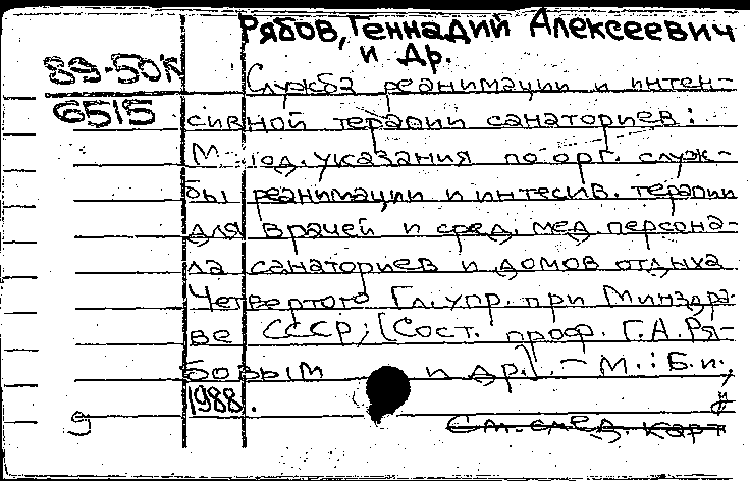 Рябов, Геннадий Алексеевич
и др.
89-50К
6515
Служба реанимации и интен-
сивной терапии санаториев:
М год. указания по орг. служ-
бы реанимации и интесив. терапии
для врачей и сред. мед. персона-
ла санаториев и домов отдыха
Четвертого Гл. упр. при Минздра-
ве СССР; [Сост. проф. Г.А. Ря-
бовым и др.]. - М. : Б.и.,
1988.
9
См. след. карт